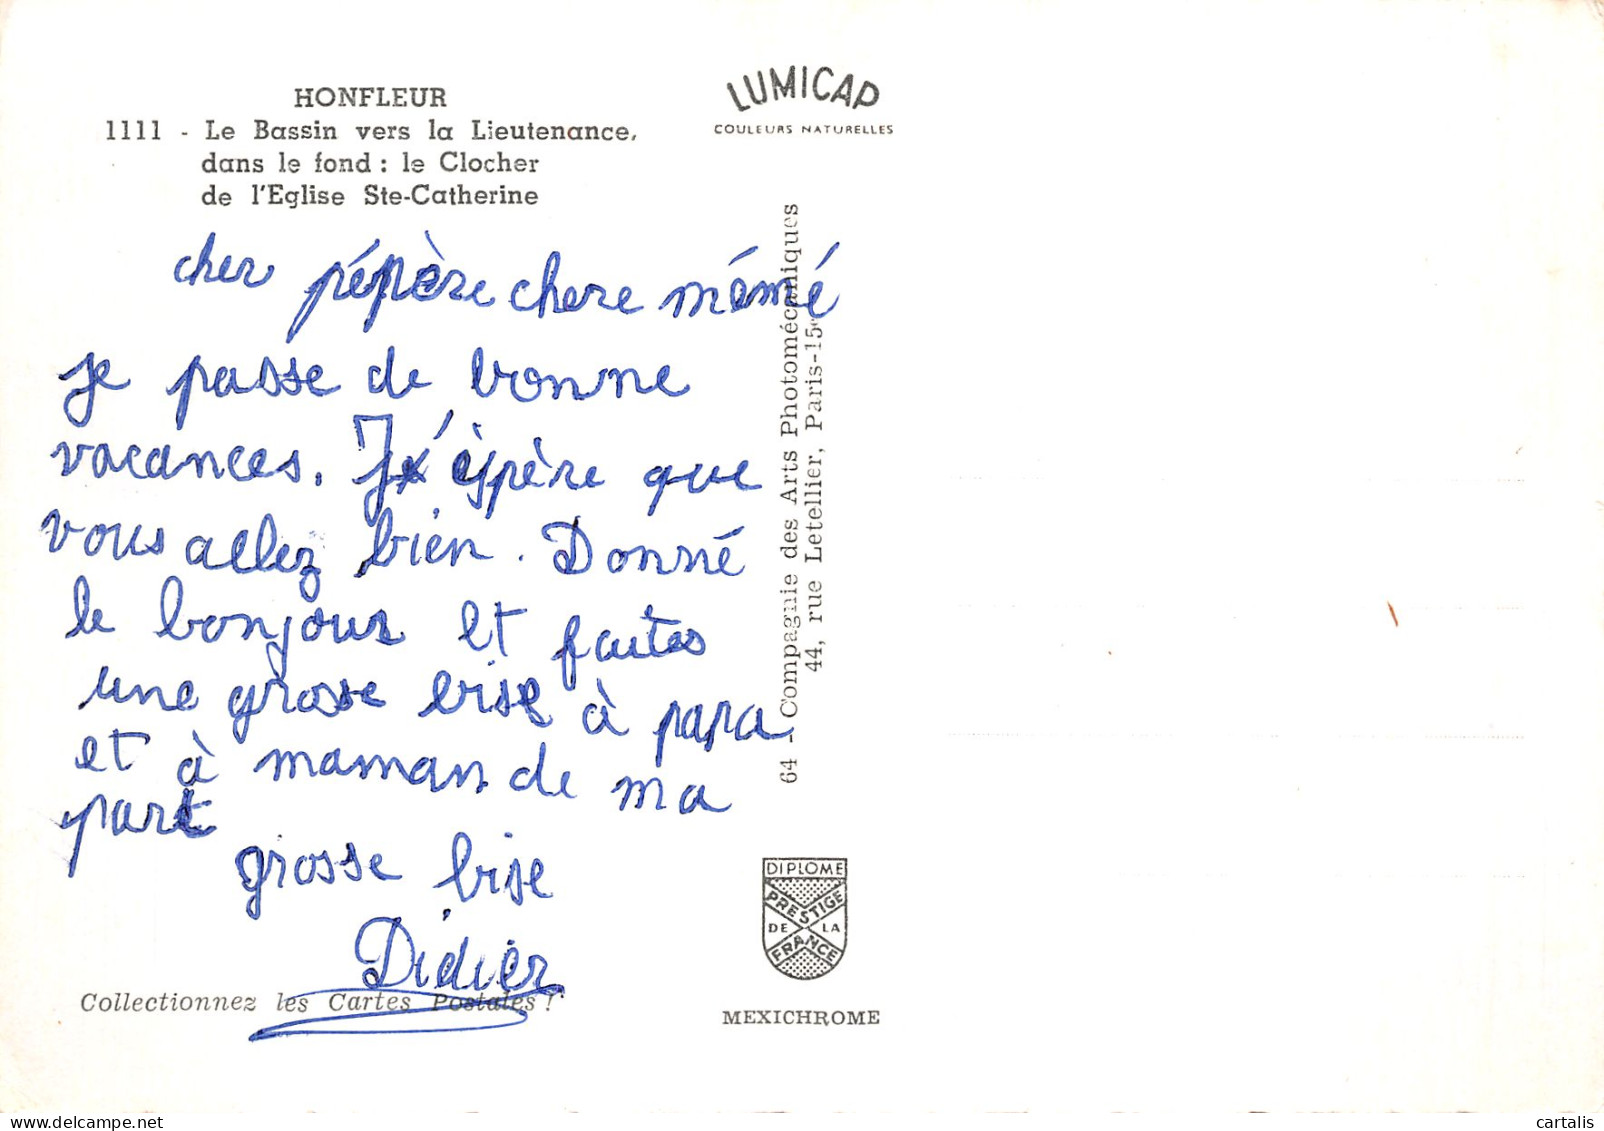 HONFLEUR
1111 - Le Bassin vers la Lieutenance,
dans le fond : le Clocher
de l'Eglise Ste-Catherine
LUMICAP
COULEURS NATURELLES
cher pépère chere mémé
je passe de bonne
vacances. J'éspère que
vous allez bien. Donné
le bonjour et faites
une grosse bise à papa
et à maman de ma
part
grosse bise
Didier
Collectionnez les Cartes Postales !
64 - Compagnie des Arts Photomécaniques
44, rue Letellier, Paris-15e
DIPLOME
PRESTIGE
DE LA
FRANCE
MEXICHROME
cartalis